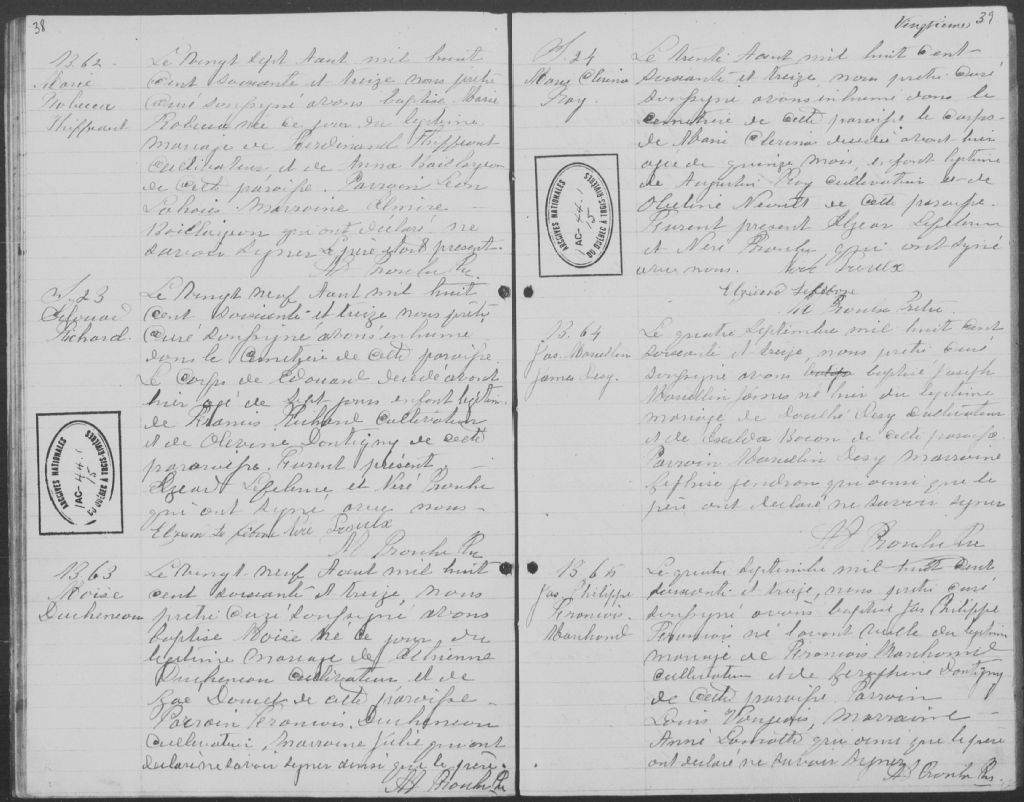 38
B.62
Marie
Rebecca
Thiffeault
Le vingt sept Aout mil huit
cent soixante et treize nous prêtre
curé soussigné avons baptisé Marie
Rebecca née ce jour du légitime
mariage de Ferdinand Thiffeault
cultivateur et de Anna Baillargeon
de cette paroisse. Parrain Léon
Marraine Elmire
Baillargeon qui ont déclaré ne
savoir signer Le père étant présent
Proulx Ptre
S.23
Edouard
Richard.
Le vingt neuf Aout mil huit
cent soixante et treize nous prêtre
curé soussigné avons inhumé
dans le cimetière de cette paroisse
le corps de Edouard décédé avant
hier agé de sept jours enfant légitime
de Francis Richard cultivateur
et de Olezine Dontigny de cette
pararoisse. Furent présent
Elzear Lefebvre et Néré Proulx
qui ont signé avec nous
Néré Proulx
Proulx Ptre
B.63
Moïse
Duchesneau
Le vingt neuf Aout mil huit
cent soixante et treize, nous
prêtre curé soussigné avons
baptisé Moïse né ce jour du
légitime mariage de
Duchesneau cultivateur et de
Zoé Doucet de cette paroisse
Parrain Francois Duchesneau
cultivateur, Marraine Julie qui ont
déclaré ne savoir signer ainsi que le père.
Proulx Ptre
ARCHIVES NATIONALES
IAC-44.1
15
DU QUÉBEC À TROIS-RIVIÈRES
Vingtième 39
S.24
Marie Clerina
Roy.
Le trente Aout mil huit cent
soixante et treize, nous prêtre curé
soussigné avons inhumé dans le
cimetière de cette paroisse le corps
de Marie Clerina décédée avant hier
agée de quinze mois, enfant légitime
de Augustin Roy cultivateur et de
de cette paroisse.
Furent present Elzear Lefebvre
et Néré Proulx qui ont signé
avec nous. Néré Proulx
Elzéard Lefebvre
Proulx Prêtre
B.64
Jos. Marcellin
James Desy.
Le quatre Septembre mil huit cent
soixante et treize, nous prêtre curé
soussigné avons baptisé Joseph
Marcellin James né hier du légitime
mariage de Desy cultivateur
et de Bacon de cette paroisse.
Parrain Marcellin Desy marraine
Gendron qui ainsi que le
père ont déclaré ne savoir signer
Proulx Ptre
B.65
Jos. Philippe
Francois
Marchand
Le quatre Septembre mil huit cent
soixante et treize, nous prêtre curé
soussigné avons baptisé Jos Philippe
Francois né l'avant veille du légitime
mariage de Francois Marchand
cultivateur et de Dontigny
de cette paroisse. Parrain
Louis marraine
Anné Lamothe qui ainsi que le père
ont déclaré ne savoir signer
Proulx Ptre.
ARCHIVES NATIONALES
IAC-44.1
15
DU QUÉBEC À TROIS-RIVIÈRES